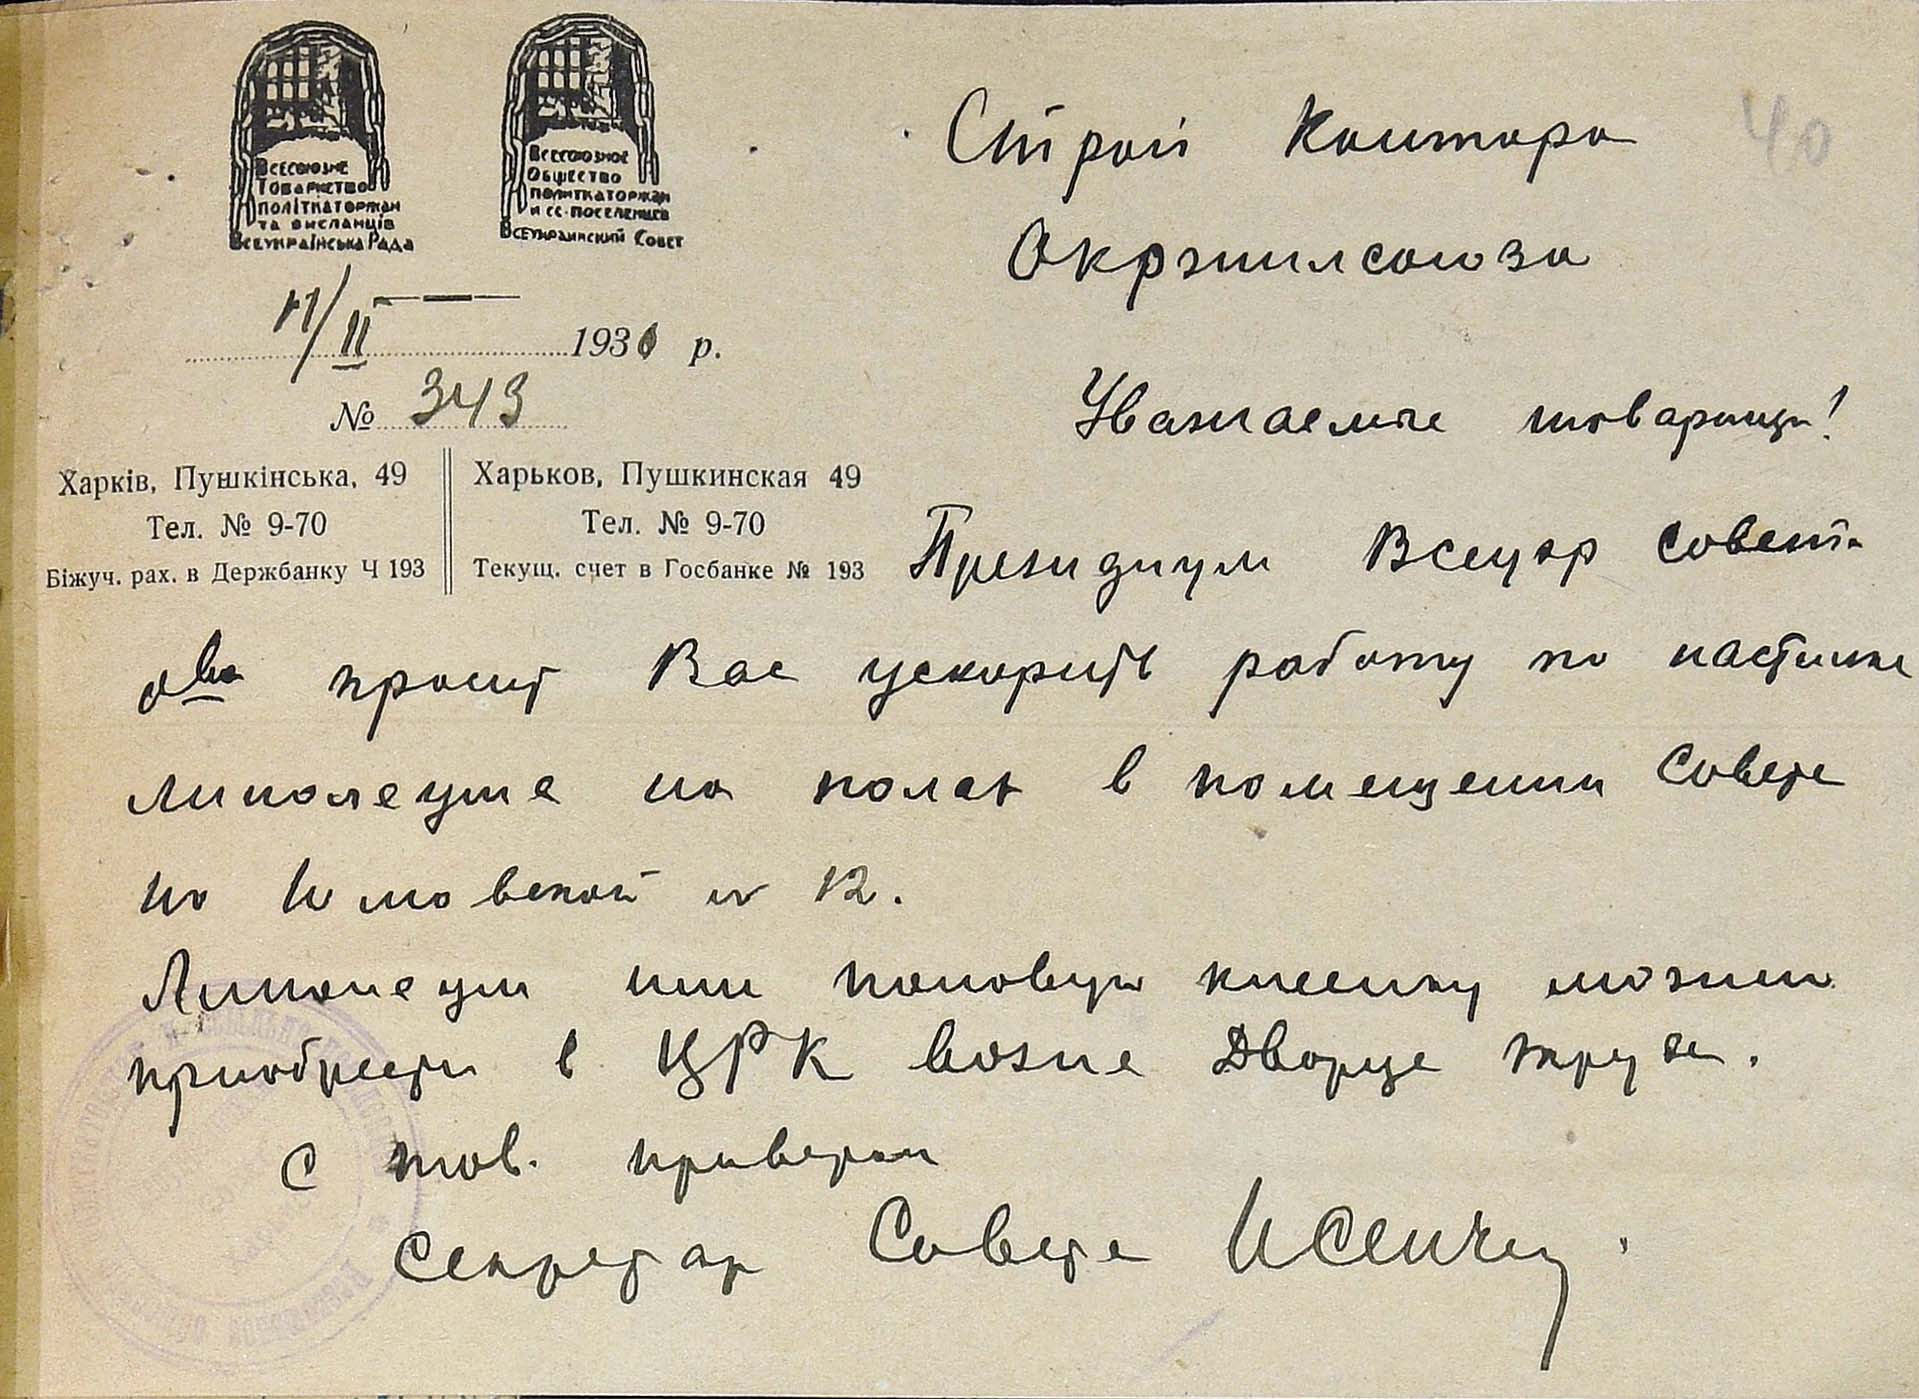 Всесоюзне
Товариство
політкаторжан
та висланців
Всеукраїнська Рада
Всесоюзное
Общество
политкаторжан
и сс-поселенцев
Всеукраинский Совет
40
11/II 1930 р.
№ 343
Харків, Пушкінська, 49
Тел. № 9-70
Біжуч. рах. в Держбанку Ч 193
Харьков, Пушкинская 49
Тел. № 9-70
Текущ. счет в Госбанке № 193
Строй Контора
Окржилсоюза
Уважаемые товарищи!
Президиум Всеукр совет
о-ва просит Вас ускорить работу по настилке
линолеума на полах в помещении Совета
по № 12.
Линолеум или половую клеенку можно
приобрести в ЦРК возле Дворца труда.
С тов. приветом
Секретар Совета